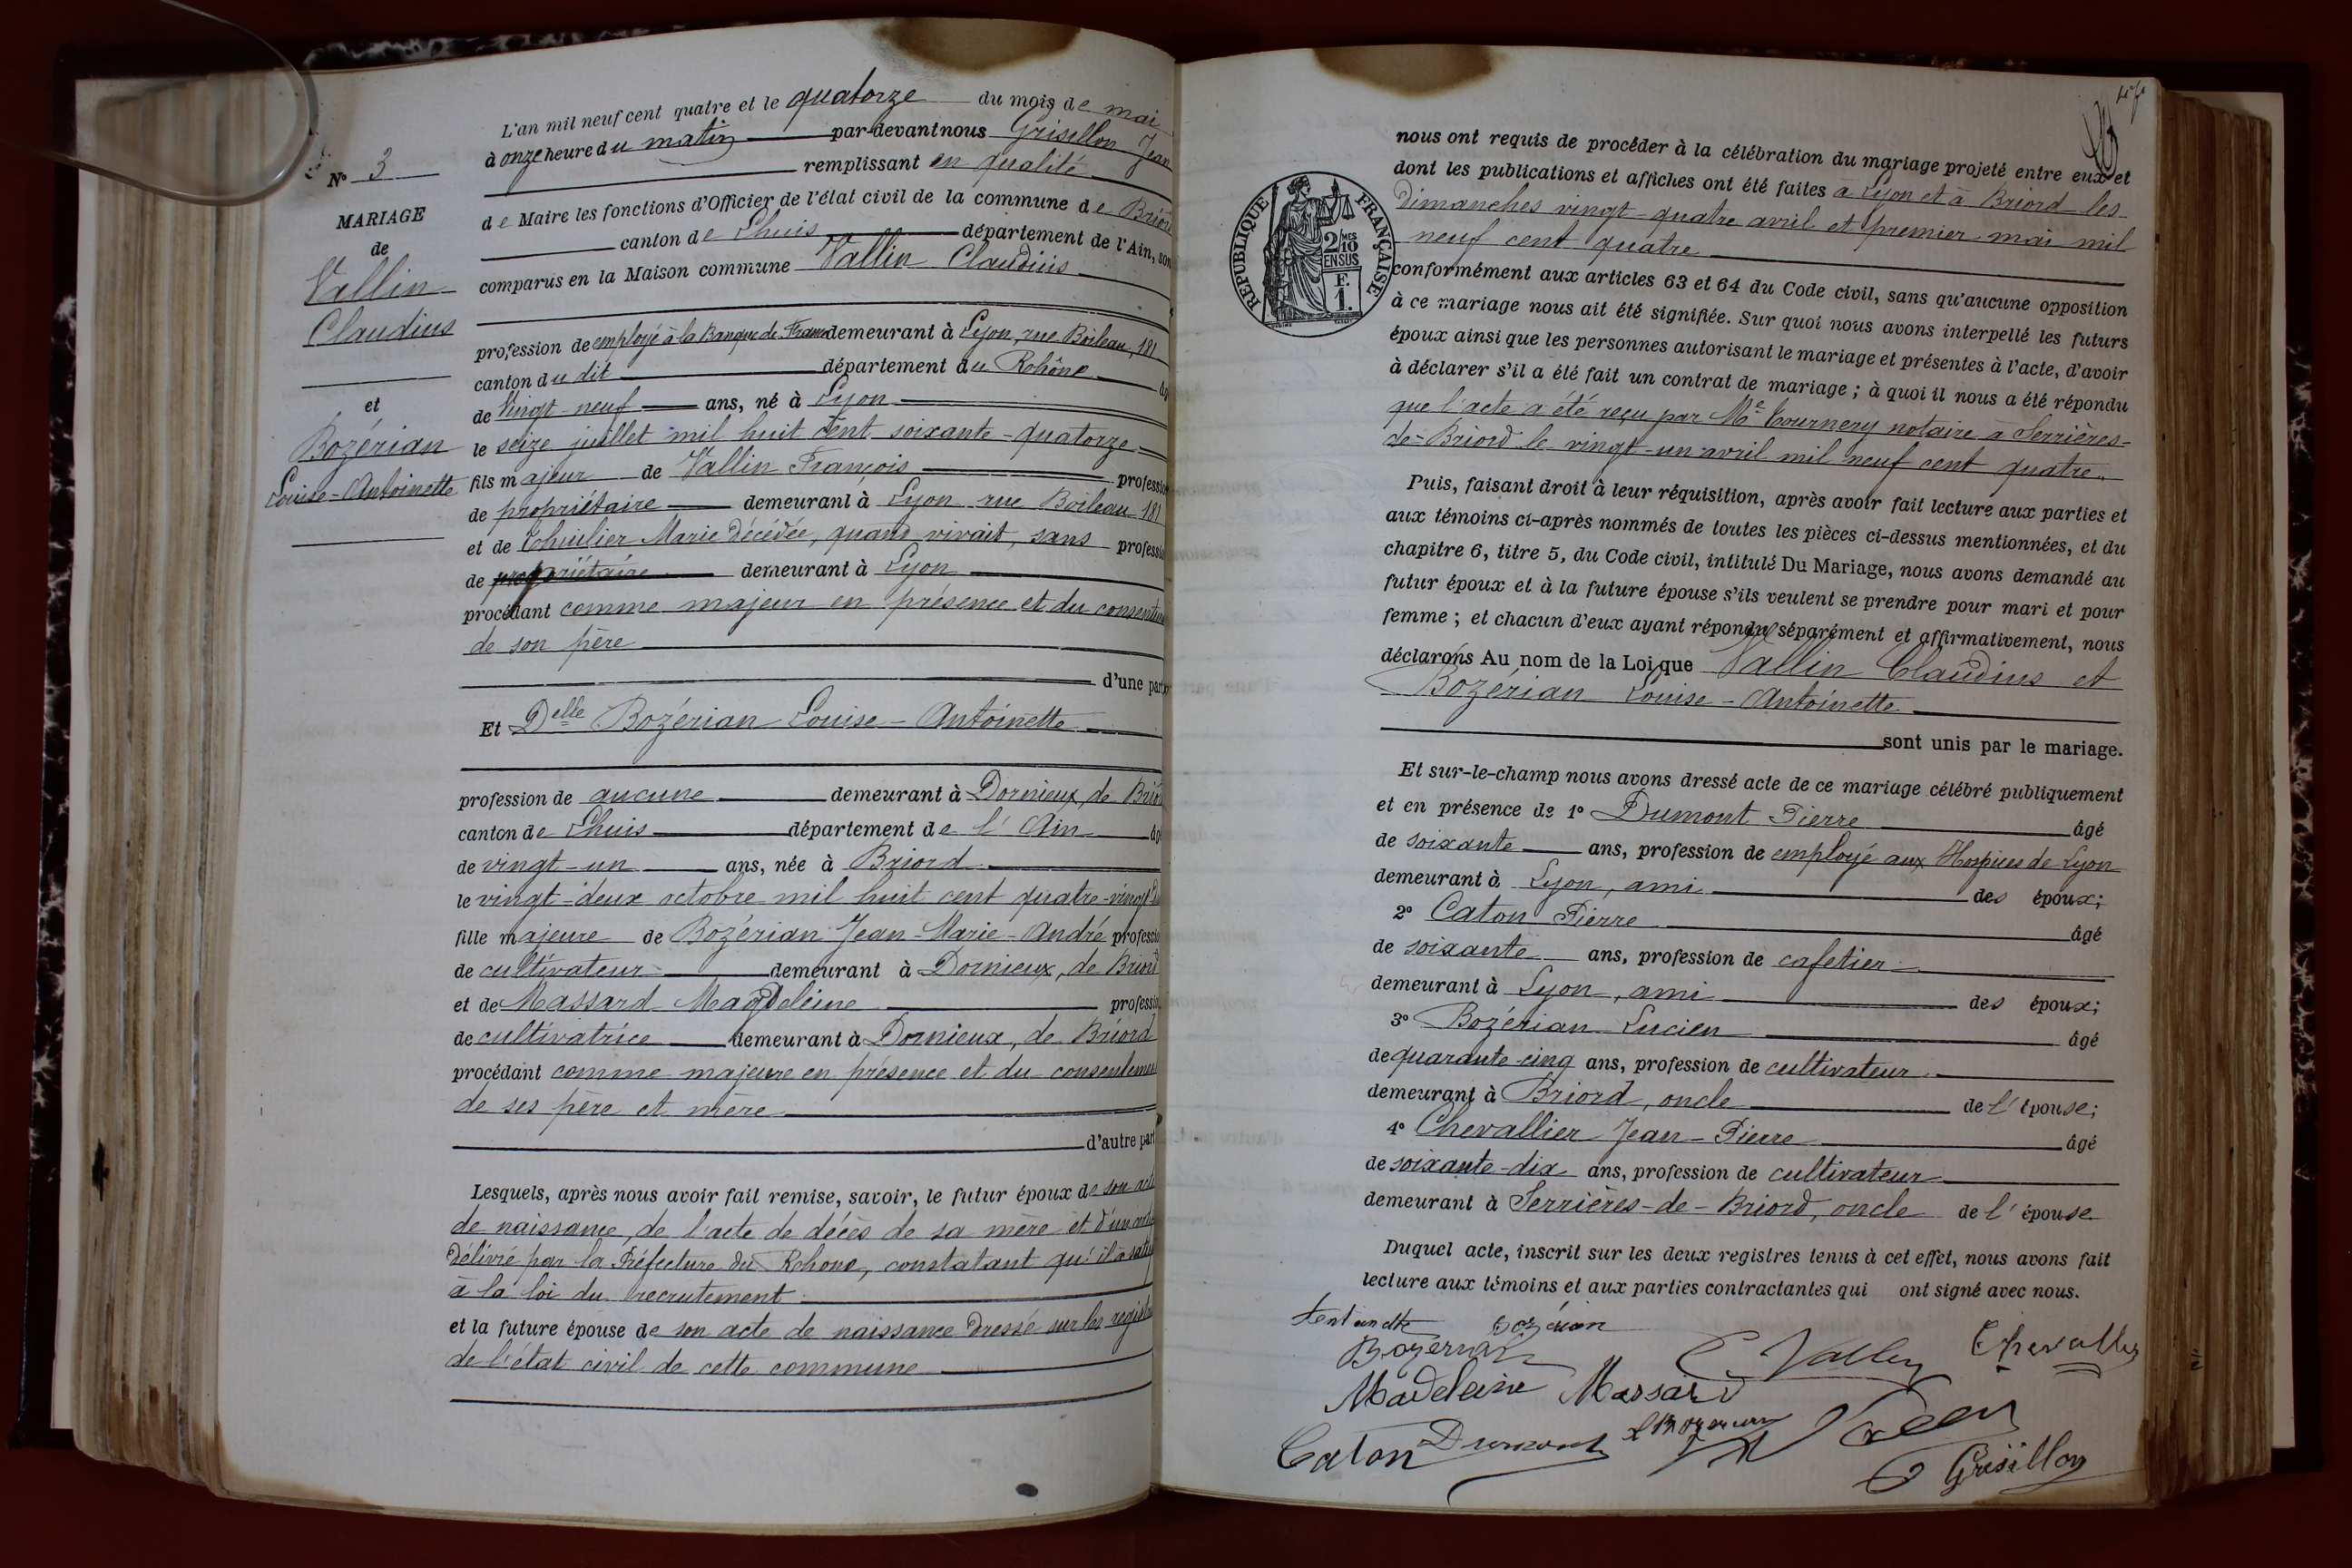 N° 3
MARIAGE
de
Vallin
Claudius
et
Bozérian
Louise-Antoinette
L'an mil neuf cent quatre et le quatorze du mois de mai
à onze heure du matin par-devant nous Grisillon Jean
remplissant en qualité
de Maire les fonctions d'Officier de l'état civil de la commune de Briord
canton de Lhuis département de l'Ain, son
comparus en la Maison commune Vallin Claudius
profession de employé à la Banque de France demeurant à Lyon, rue Boileau, 181
canton du dit département du Rhône âg
de vingt-neuf ans, né à Lyon
le seize juillet mil huit cent soixante-quatorze
fils majeur de Vallin François profession
de propriétaire demeurant à Lyon rue Boileau 181
et de Marie décédée, quand vivait, sans profession
de propriétaire demeurant à Lyon
procédant comme majeur en présence et du consentem
de son père
d'une part
Et Delle Bozérian Louise-Antoinette
profession de aucune demeurant à Dornieux, de Brio
canton de Lhuis département de l'Ain âg
de vingt-un ans, née à Briord
le vingt-deux octobre mil huit cent quatre-vingt-d
fille majeure de Bozérian Jean-Marie-André professio
de cultivateur demeurant à Dornieux, de Briord
et de Massard Magdeleine profession
de cultivatrice demeurant à Dornieux, de Briord
procédant comme majeure en présence et du consentemen
de ses père et mère
d'autre part
Lesquels, après nous avoir fait remise, savoir, le futur époux de son acte
de naissance, de l'acte de décès de sa mère et d'un
délivré par la Préfecture du Rohone, constatant qu'il a satisf
à la loi du recrutement
et la future épouse de son acte de naissance dressé sur les registre
de l'état civil de cette commune
nous ont requis de procéder à la célébration du mariage projeté entre eux et
dont les publications et affiches ont été faites à Lyon et à Briord les
dimanches vingt-quatre avril et premier mai mil
neuf cent quatre
RÉPUBLIQUE FRANÇAISE
2/10 MES
EN SUS
F.
1.
conformément aux articles 63 et 64 du Code civil, sans qu'aucune opposition
à ce mariage nous ait été signifiée. Sur quoi nous avons interpellé les futurs
époux ainsi que les personnes autorisant le mariage et présentes à l'acte, d'avoir
à déclarer s'il a été fait un contrat de mariage ; à quoi il nous a été répondu
que l'acte a été reçu par Me Tournery notaire à Serrières-
de-Briord le vingt-un avril mil neuf cent quatre.
Puis, faisant droit à leur réquisition, après avoir fait lecture aux parties et
aux témoins ci-après nommés de toutes les pièces ci-dessus mentionnées, et du
chapitre 6, titre 5, du Code civil, intitulé Du Mariage, nous avons demandé au
futur époux et à la future épouse s'ils veulent se prendre pour mari et pour
femme ; et chacun d'eux ayant répondu séparément et affirmativement, nous
déclarons Au nom de la Loi que Vallin Claudius et
Bozérian Louise-Antoinette
sont unis par le mariage.
Et sur-le-champ nous avons dressé acte de ce mariage célébré publiquement
et en présence de 1° Dumont Pierre âgé
de soixante ans, profession de employé aux Hospices de Lyon
demeurant à Lyon, ami des époux;
2° Caton Pierre âgé
de soixante ans, profession de cafetier
demeurant à Lyon, ami des époux;
3° Bozérian Lucien âgé
de quarante-cinq ans, profession de cultivateur
demeurant à Briord, oncle de l'épouse;
4° Chevallier Jean-Pierre âgé
de soixante-dix ans, profession de cultivateur
demeurant à Serrières-de-Briord, oncle de l'épouse
Duquel acte, inscrit sur les deux registres tenus à cet effet, nous avons fait
lecture aux témoins et aux parties contractantes qui ont signé avec nous.
Bozérian
Bozerian C. Vallin Chevallier
Madeleine Massard
Caton Dumont
Grisillon